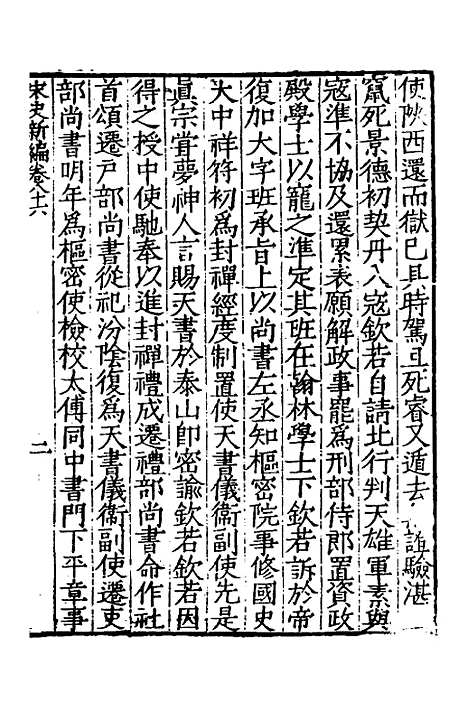 使陝西還而獄已具時駕且死睿又遁去 證驗湛
竄死景德初契丹入寇欽若自請北行判天雄軍素與
寇準不協及還累表願解政事罷為刑部侍郎置資政
殿學士以寵之準定其班在翰林學士下欽若訴於帝
復加大字班承旨上以尚書左丞知樞密院事修國史
大中祥符初為封禪經度制置使天書儀衛副使先是
真宗嘗夢神人言賜天書於泰山即密諭欽若欽若因
得之授中使馳奉以進封禪禮成遷禮部尚書命作社
首頌遷戶部尚書從祀汾陰復為天書儀衛副使遷吏
部尚書明年為樞密使檢校太傅同中書門下平章事
宋史新編卷八十六 二